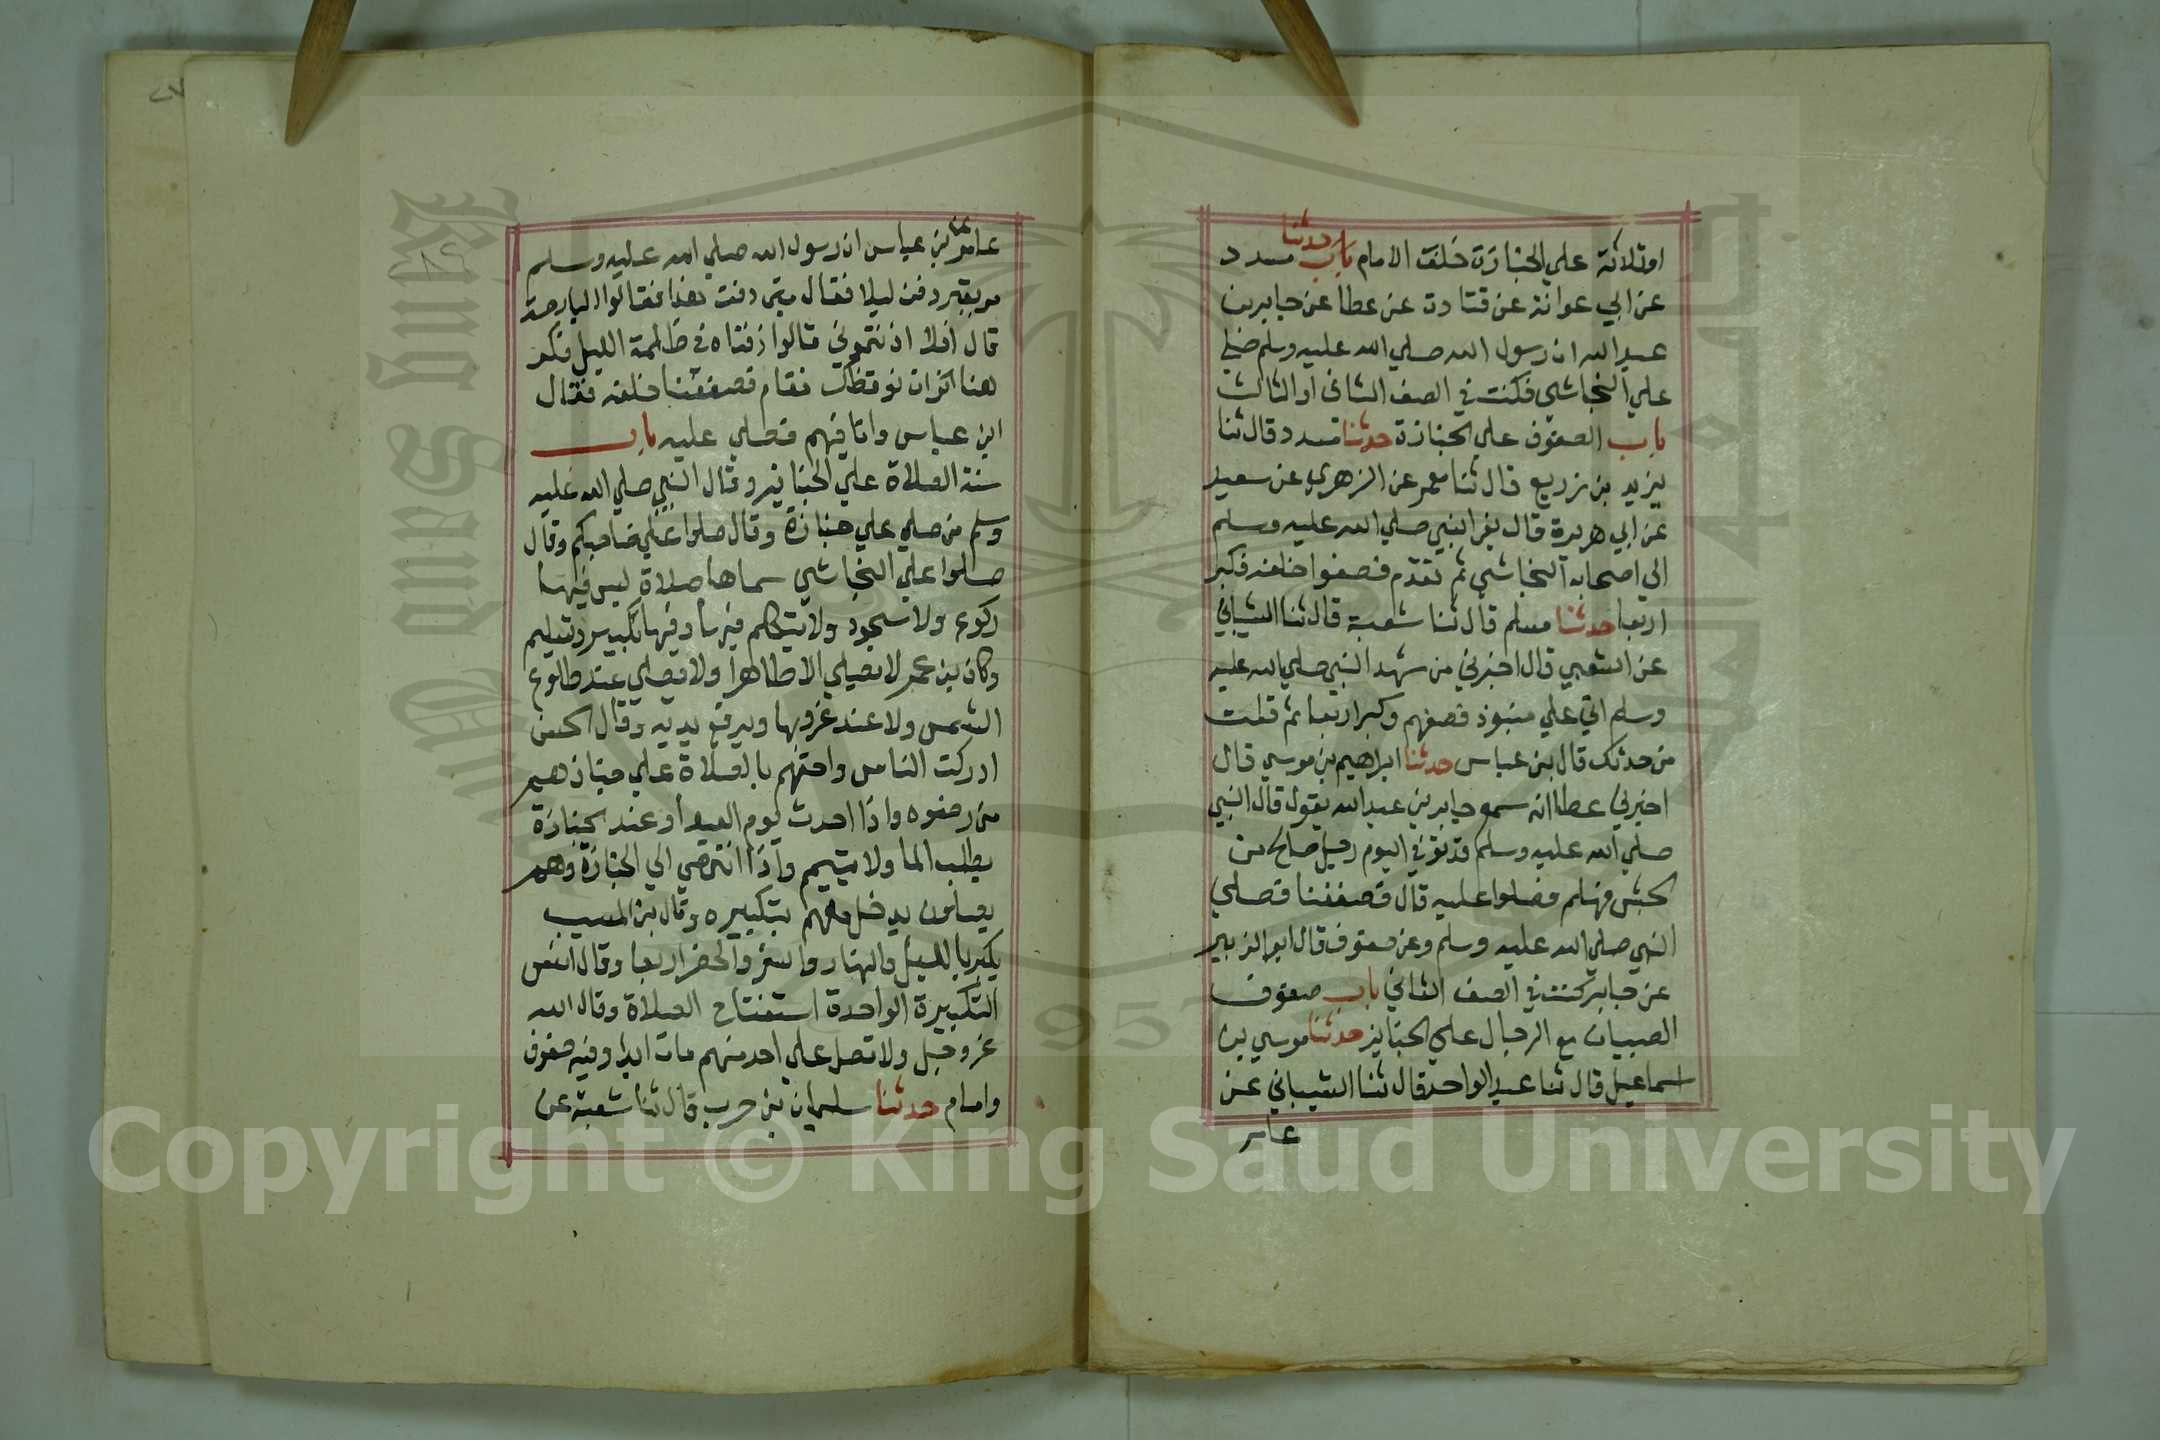 اوثلاثة علي الجنازة خلف الامام باب حدثنا مسدد
عن ابي عوانة عن قتادة عن عطا عن جابر بن
عبد الله ان رسول الله صلي الله عليه وسلم صلي
علي النجاشي فكنت في الصف الثاني او الثالث
باب الصفوف علي الجنازة حدثنا مسدد قال ثنا
يزيد بن زريع قال ثنا معمر عن الزهري عن سعيد
عن ابي هريرة قال نعي النبي صلي الله عليه وسلم
الي اصحابه النجاشي ثم تقدم فصفوا خلفه فكبر
اربعا حدثنا مسلم قال ثنا شعبة قال ثنا الشيباني
عن الشعبي قال اخبرني من شهد النبي صلي الله عليه
وسلم اتي علي منبوذ فصفهم وكبر اربعا ثم قلت
من حدثك قال بن عباس حدثنا ابراهيم بن موسي قال
اخبرني عطا انه سمع جابر بن عبد الله يقول قال النبي
صلي الله عليه وسلم قد توفي اليوم رجل صالح من
الحبش فهلم فصلوا عليه قال فصففنا فصلي
النبي صلي الله عليه وسلم وعن صفوف قال ابو الزبير
عن جابر كنت في الصف الثاني باب صفوف
الصبيان مع الرجال علي الجنايز حدثنا موسي بن
اسماعيل قال ثنا عبد الواحد قال ثنا الشيباني عن
عامر
عامر عن بن عباس ان رسول الله صلي الله عليه وسلم
مر بقبر دفن ليلا فقال متي دفن هذا فقالوا البارحة
قال افلا اذنتموني قالوا دفناه في ظلمة الليل فكر
هنا ان نوقظك فقام فصففنا خلفه فقال
ابن عباس وانا فيهم فصلي عليه باب
سنة الصلاة علي الجنايز وقال النبي صلي الله عليه
وسلم من صلي علي جنازة وقال صلوا علي صاحبكم وقال
صلوا علي النجاشي سماها صلاة ليس فيها
ركوع ولا سجود ولا يتكلم فيها وفيها تكبير وتسليم
وكان بن عمر لا يصلي الا طاهرا ولا يصلي عند طلوع
الشمس ولا عند غروبها ويرفع يديه وقال الحسن
ادركت الناس واحقهم بالصلاة علي جنازهم
من رضوه واذا احدث يوم العيد او عند الجنازة
يطلب الما ولا يتيمم واذا انتهي الي الجنازة وهم
يصلون يدخل معهم بتكبيره وقال بن المسيب
يكبر بالليل والنهار والسفر والحضر اربعا وقال انس
التكبيرة الواحدة استفتاح الصلاة وقال الله
عز وجل ولا تصل علي احد منهم مات ابدا وفيه صفوف
وامام حدثنا سليمان بن حرب قال ثنا شعبة عن
King Saud University
1957
Copyright © King Saud University